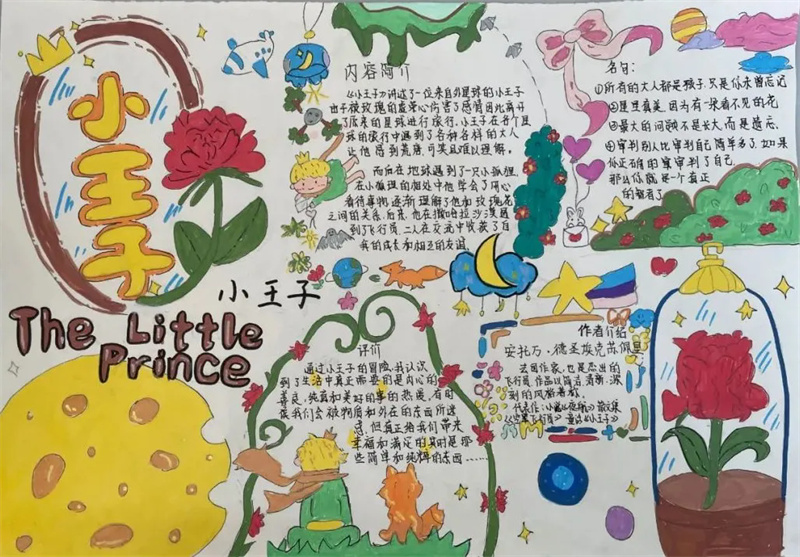 小王子
小王子
The Little
Prince
内容简介
《小王子》讲述了一位来自外星球的小王子
由于被玫瑰的虚荣心伤害了感情因此离开
了原来的星球进行旅行,小王子在各个星
球的旅行中遇到了各种各样的大人
让他感到荒唐可笑且难以理解。
而后在地球遇到了一只小狐狸,
在小狐狸的相处中他学会了用心
看待事物逐渐理解了他和玫瑰花
之间的关系,后来,他在撒哈拉沙漠遇
到飞行员,二人在交流中收获了自
我的成长和相互的友谊
名句:
①所有的大人都是孩子,只是你未曾忘记
②星星真美,因为有一朵看不见的花
③最大的问题不是长大,而是遗忘.
④审判别人比审判自己简单多了,如果
你正确的审判了自己,
那么你就是一个真正
的智者了
评价
通过小王子的冒险,我认识
到了生活中真正需要的是内心的
善良,纯真和美好的事的热爱,有时
候我们会被物质和外在的东西所迷
惑,但真正给我们带来
幸福和满足的其时是那
些简单和纯粹的东西……
作者介绍
安托万·德圣埃克苏佩里
法国作家,也是杰出的
飞行员,作品以简洁,清晰,深
刻的风格著称
代表作:小说《夜航》散文集